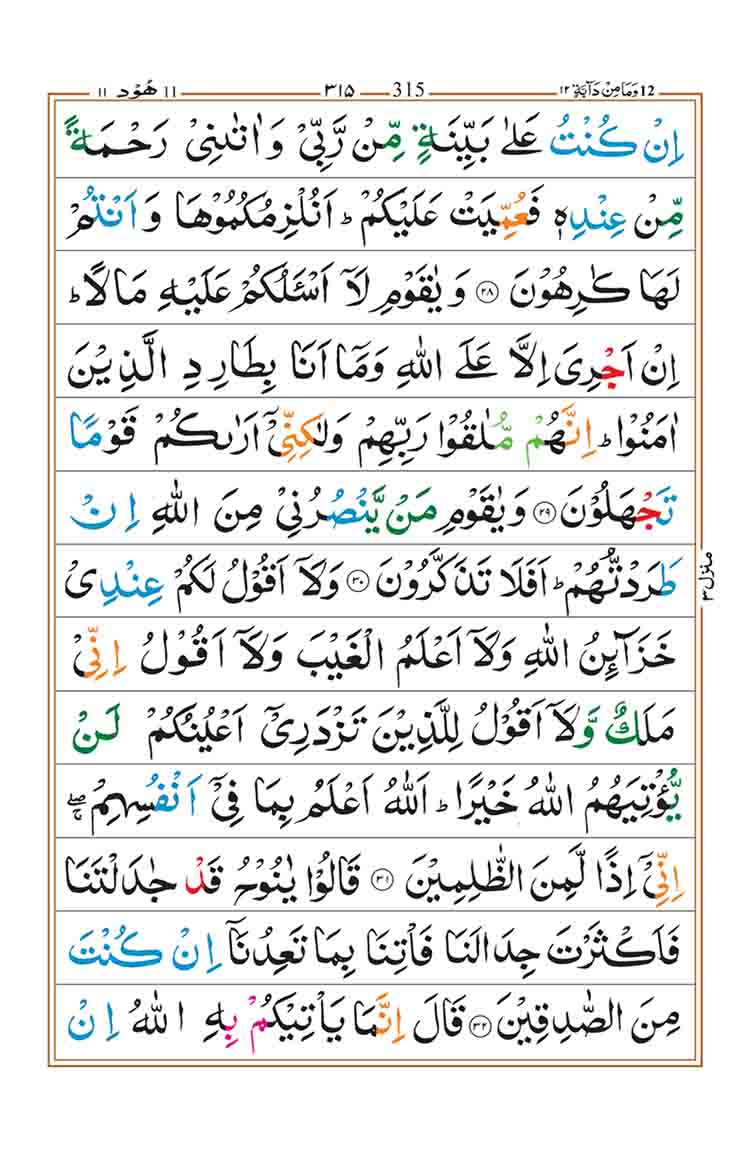 12 وَمَا مِنْ دَآبَّةٍ ١٢ 315 ٣١٥ 11 هُوْد ١١
اِنْ كُنْتُ عَلٰى بَيِّنَةٍ مِّنْ رَّبِّىْ وَاٰتٰىنِىْ رَحْمَةً
مِّنْ عِنْدِهٖ فَعُمِّيَتْ عَلَيْكُمْ ؕ اَنُلْزِمُكُمُوْهَا وَاَنْتُمْ
لَهَا كٰرِهُوْنَ ۝٢٨ وَيٰقَوْمِ لَاۤ اَسْـَٔلُكُمْ عَلَيْهِ مَالًا ؕ
اِنْ اَجْرِىَ اِلَّا عَلَى اللّٰهِ وَمَاۤ اَنَا بِطَارِدِ الَّذِيْنَ
اٰمَنُوْا ؕ اِنَّهُمْ مُّلٰقُوْا رَبِّهِمْ وَلٰكِنِّىْۤ اَرٰىكُمْ قَوْمًا
تَجْهَلُوْنَ ۝٢٩ وَيٰقَوْمِ مَنْ يَّنْصُرُنِىْ مِنَ اللّٰهِ اِنْ
طَرَدْتُّهُمْ ؕ اَفَلَا تَذَكَّرُوْنَ ۝٣٠ وَلَاۤ اَقُوْلُ لَكُمْ عِنْدِىْ
خَزَآئِنُ اللّٰهِ وَلَاۤ اَعْلَمُ الْغَيْبَ وَلَاۤ اَقُوْلُ اِنِّىْ
مَلَكٌ وَّلَاۤ اَقُوْلُ لِلَّذِيْنَ تَزْدَرِىْۤ اَعْيُنُكُمْ لَنْ
يُّؤْتِيَهُمُ اللّٰهُ خَيْرًا ؕ اَللّٰهُ اَعْلَمُ بِمَا فِىْۤ اَنْفُسِهِمْ ۖۚ
اِنِّىْۤ اِذًا لَّمِنَ الظّٰلِمِيْنَ ۝٣١ قَالُوْا يٰنُوْحُ قَدْ جٰدَلْتَنَا
فَاَكْثَرْتَ جِدَالَنَا فَاْتِنَا بِمَا تَعِدُنَاۤ اِنْ كُنْتَ
مِنَ الصّٰدِقِيْنَ ۝٣٢ قَالَ اِنَّمَا يَاْتِيْكُمْ بِهِ اللّٰهُ اِنْ
منزل ٣